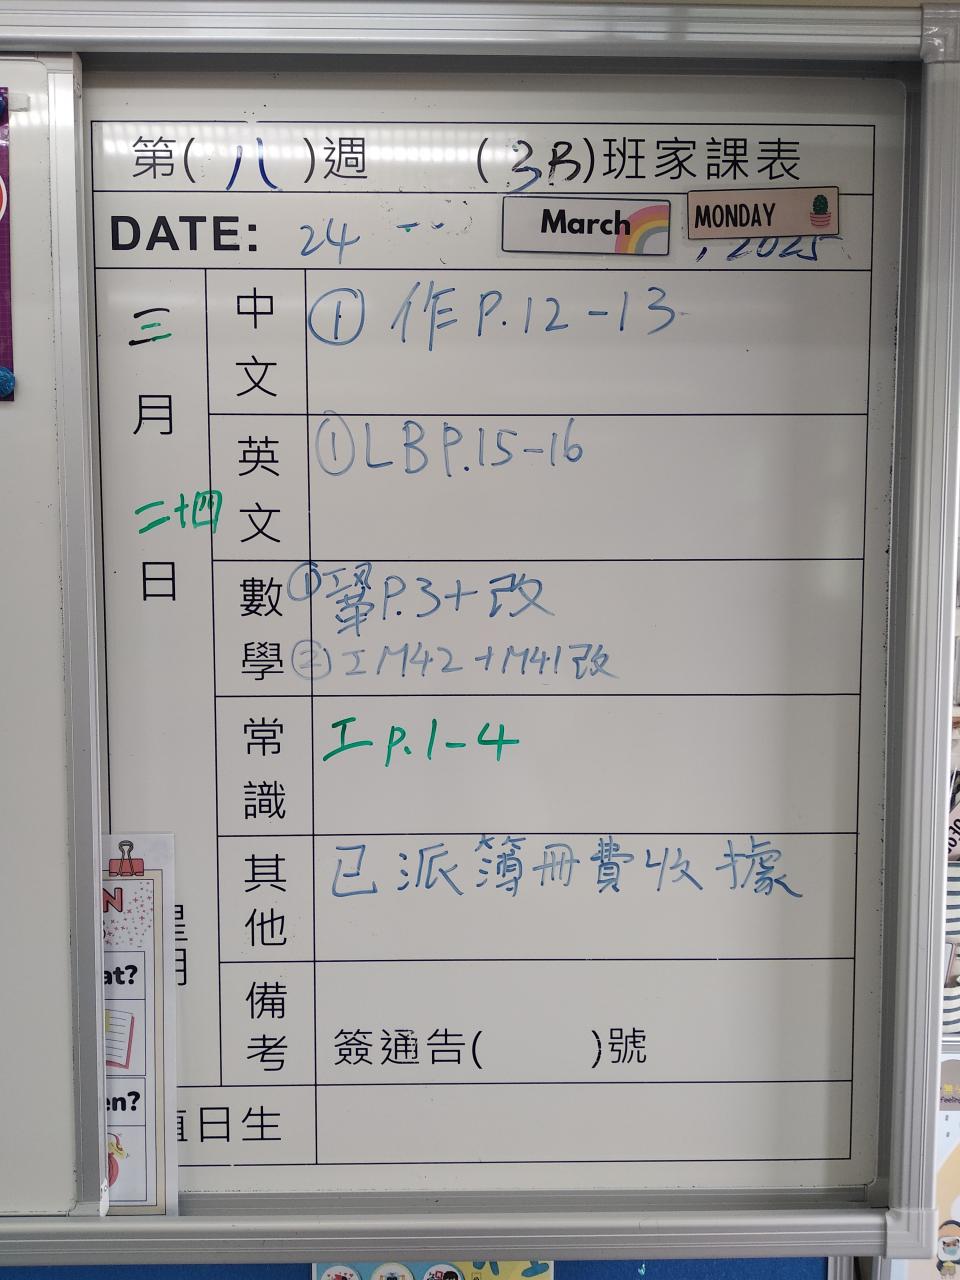 第(八)週 (3B)班家課表
DATE: 24 March MONDAY
, 2025
三月二十四日
中文 ① 作 P.12-13
英文 ① LB P.15-16
數學 ① P.3+改
② 工 M42 + M41改
常識 工 p.1-4
其他 已派簿冊費收據
備考 簽通告( )號
日生
N
at?
en?